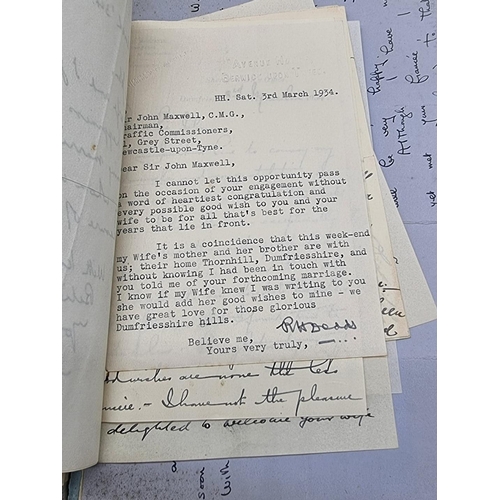 HH. Sat. 3rd March 1934.
ir John Maxwell, C.M.G.,
hairman,
raffic Commissioners,
1, Grey Street,
ewcastle-upon-Tyne.
ear Sir John Maxwell,
I cannot let this opportunity pass
on the occasion of your engagement without
a word of heartiest congratulation and
every possible good wish to you and your
wife to be for all that's best for the
years that lie in front.
It is a coincidence that this week-end
my Wife's mother and her brother are with
us; their home Thornhill, Dumfriesshire, and
without knowing I had been in touch with
you told me of your forthcoming marriage.
I know if my Wife knew I was writing to you
she would add her good wishes to mine - we
have great love for those glorious
Dumfriesshire hills.
Believe me,
Yours very truly,
wishes are none the les
- I have not the pleasure
delighted to welcome your wife
be very
happy have I
Although
met your
to that